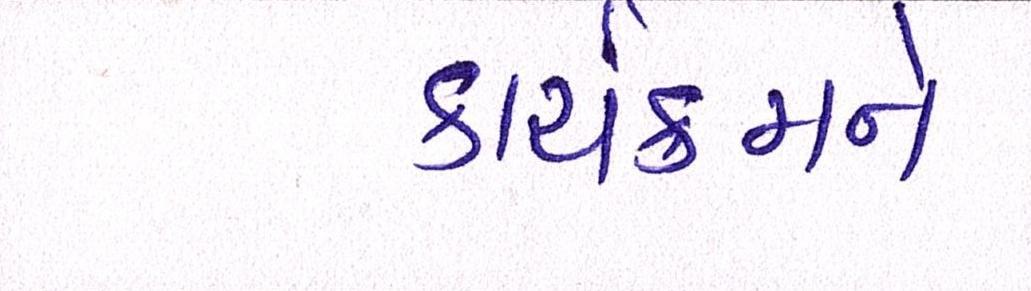 કાર્યક્રમને